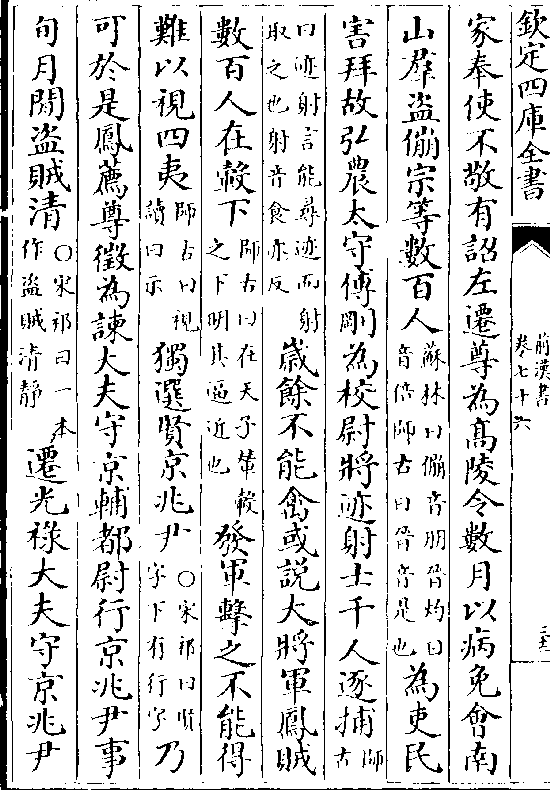 欽定四庫全書
前漢書
卷七十六
家奉使不敬有詔左遷尊為高陵令數月以病免會南
山羣盜傰宗等數百人蘇林曰傰音朋晉灼曰音倍師古曰晉音是也為吏民
害拜故弘農太守傅剛為校尉將迹射士千人逐捕師古
曰迹射言能尋迹而射取之也射音食亦反歲餘不能禽或說大將軍鳳賊
數百人在轂下師古曰在天子輦轂之下明其逼近也發軍擊之不能得
難以視四夷師古曰視讀曰示獨選賢京兆尹〇宋祁曰賢字下有行字乃
可於是鳳薦尊徵為諫大夫守京輔都尉行京兆尹事
旬月閒盜賊清〇宋祁曰一本作盜賊清靜遷光祿大夫守京兆尹